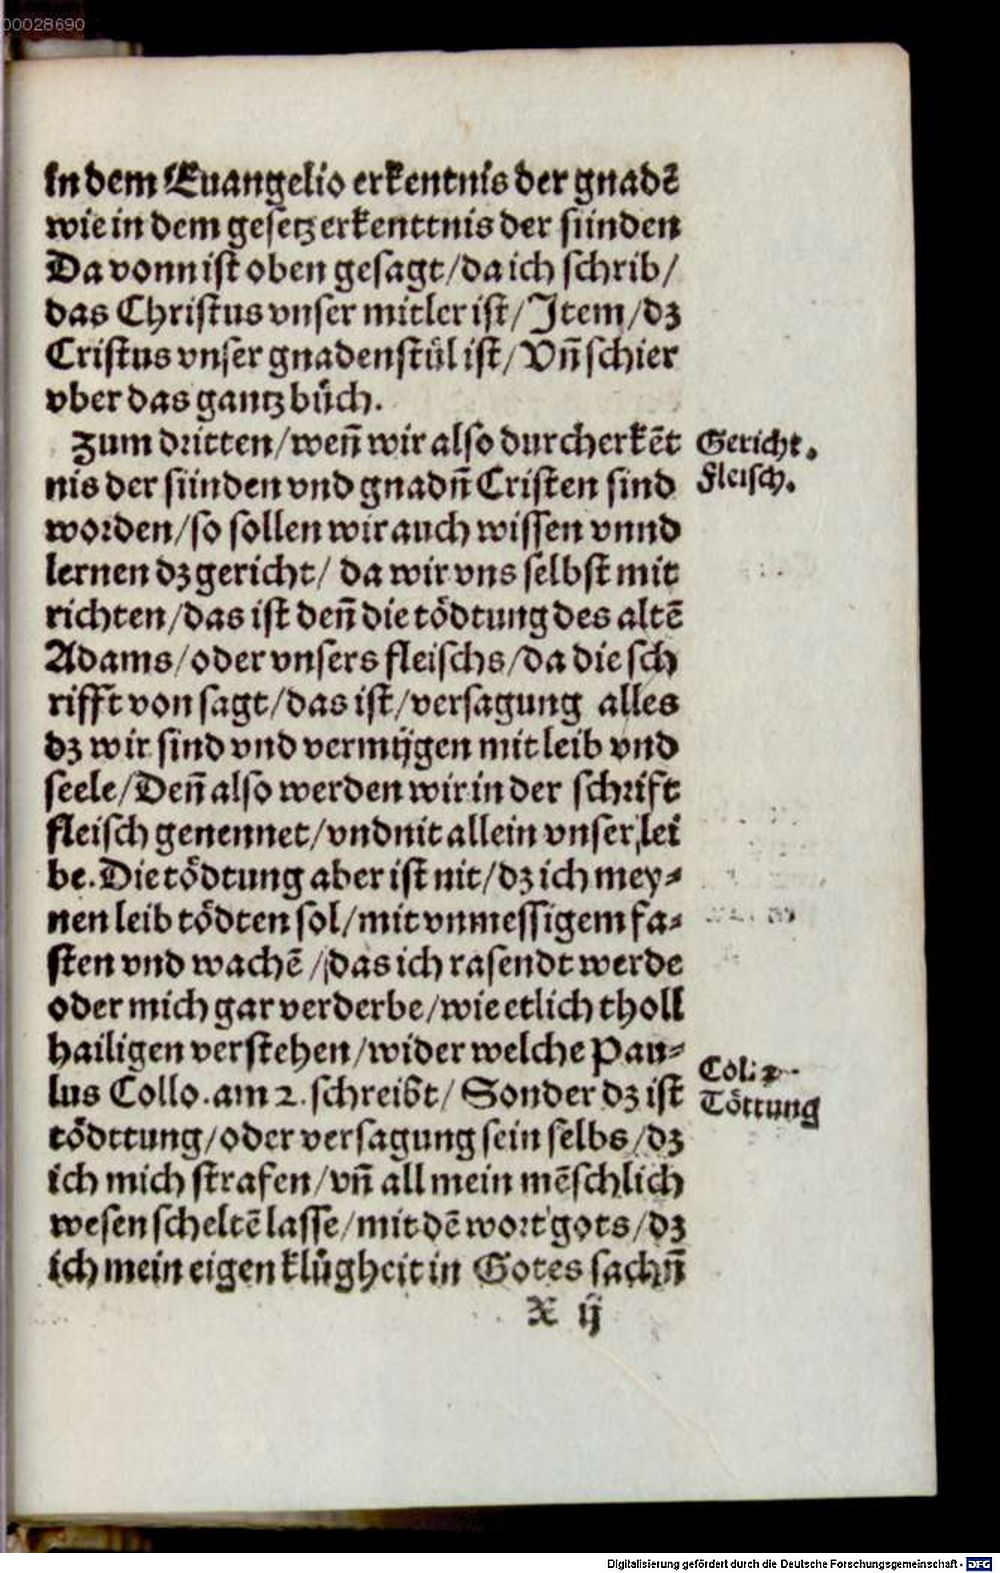 00028690
in dem Euangelio erkentnis der gnadē
wie in dem gesetz erkenttnis der sünden
Da vonn ist oben gesagt/da ich schrib/
das Christus vnser mitler ist/Item/dz
Cristus vnser gnadenstůl ist/Vñ schier
vber das gantz bůch.
Zum dritten/weñ wir also durch erkēt
nis der sünden vnd gnadñ Cristen sind
worden/so sollen wir auch wissen vnnd
lernen dz gericht/ da wir vns selbst mit
richten/das ist deñ die tödtung des altē
Adams/oder vnsers fleischs/da die sch
rifft von sagt/das ist/versagung alles
dz wir sind vnd vermügen mit leib vnd
seele/Deñ also werden wir in der schrift
fleisch genennet/vnd nit allein vnser lei
be. Die tödtung aber ist nit/dz ich mey⸗
nen leib tödten sol/mit vnmessigem fa⸗
sten vnd wachē /das ich rasendt werde
oder mich gar verderbe/wie etlich tholl
hailigen verstehen/wider welche Pau⸗
lus Collo. am 2. schreibt/ Sonder dz ist
tödttung/oder versagung sein selbs/dz
ich mich strafen/vñ all mein mēschlich
wesen scheltē lasse/mit dē wort gots/dz
ich mein eigen klůgheit in Gotes sachñ
X ij
Gericht.
Fleisch.
Col: 2
Töttung
Digitalisierung gefördert durch die Deutsche Forschungsgemeinschaft - DFG